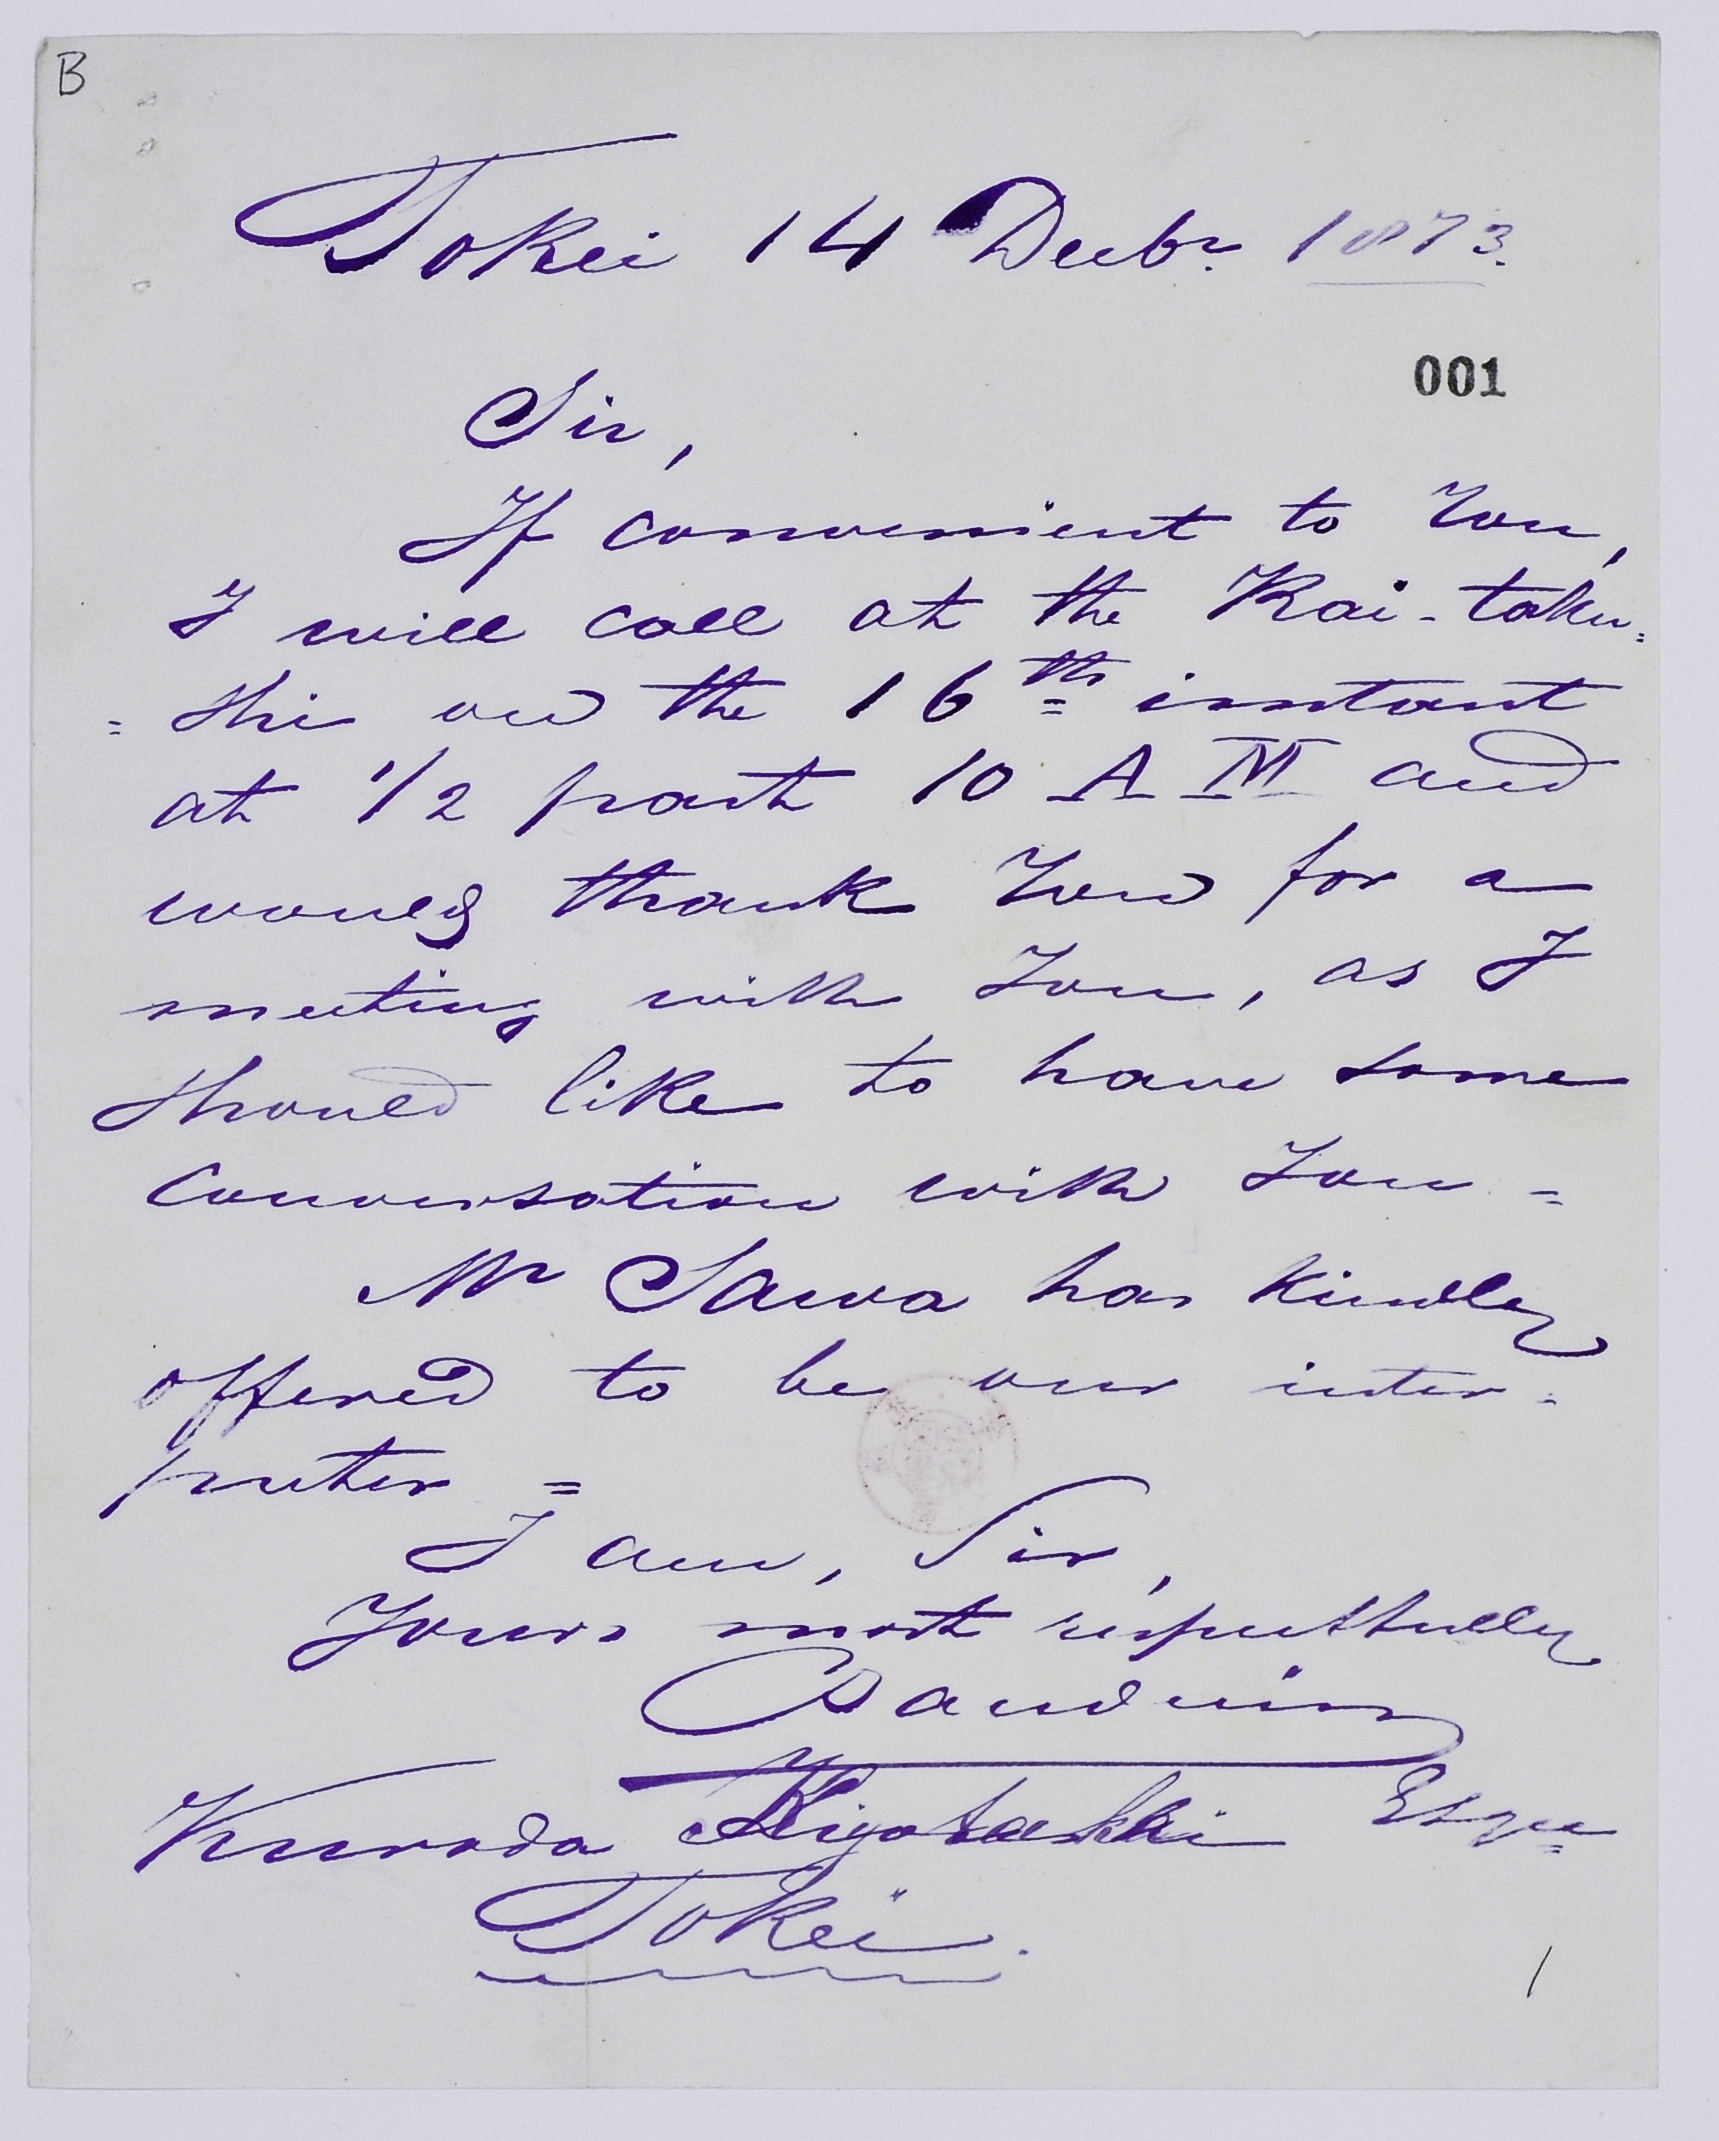 B
Tokei 14 Decbr. 1873.
001
Sir,
If convenient to You,
I will call at the Kai-taku=
=shi on the 16th instant
at 1/2 past 10 A M and
would thank You for a
meeting with You, as I
should like to have some
conversation with You =
Mr Sawa has kindly
offered to be our inter=
preter =
I am, Sir,
Yours most respectfully
Bauduin
Kuroda Kiyotaka Esqre
Tokei.
1